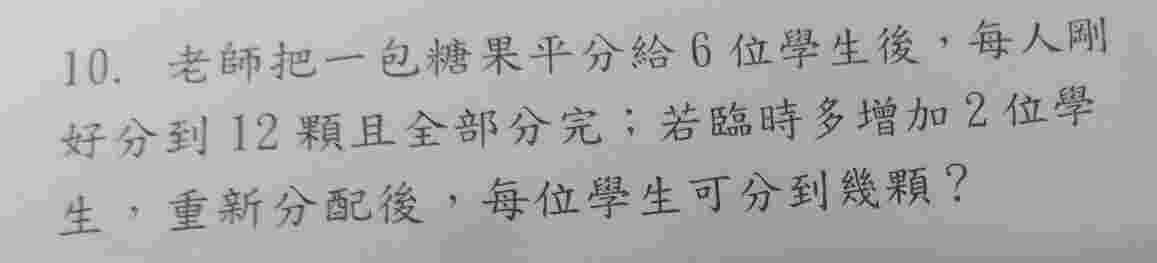 10. 老師把一包糖果平分給 6 位學生後，每人剛
好分到 12 顆且全部分完；若臨時多增加 2 位學
生，重新分配後，每位學生可分到幾顆？